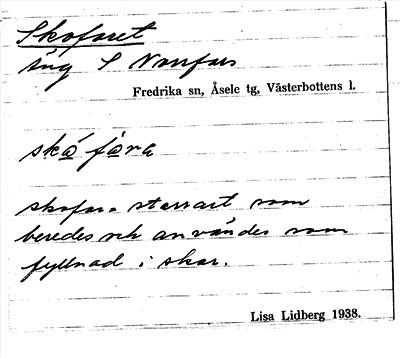 Skofaret
äng S Norrfors
Fredrika sn, Åsele tg, Västerbottens l.
skå̱ fa̱ra
skofar = starrart som
beredes och användes som
fyllnad i skor.
Lisa Lidberg 1938.